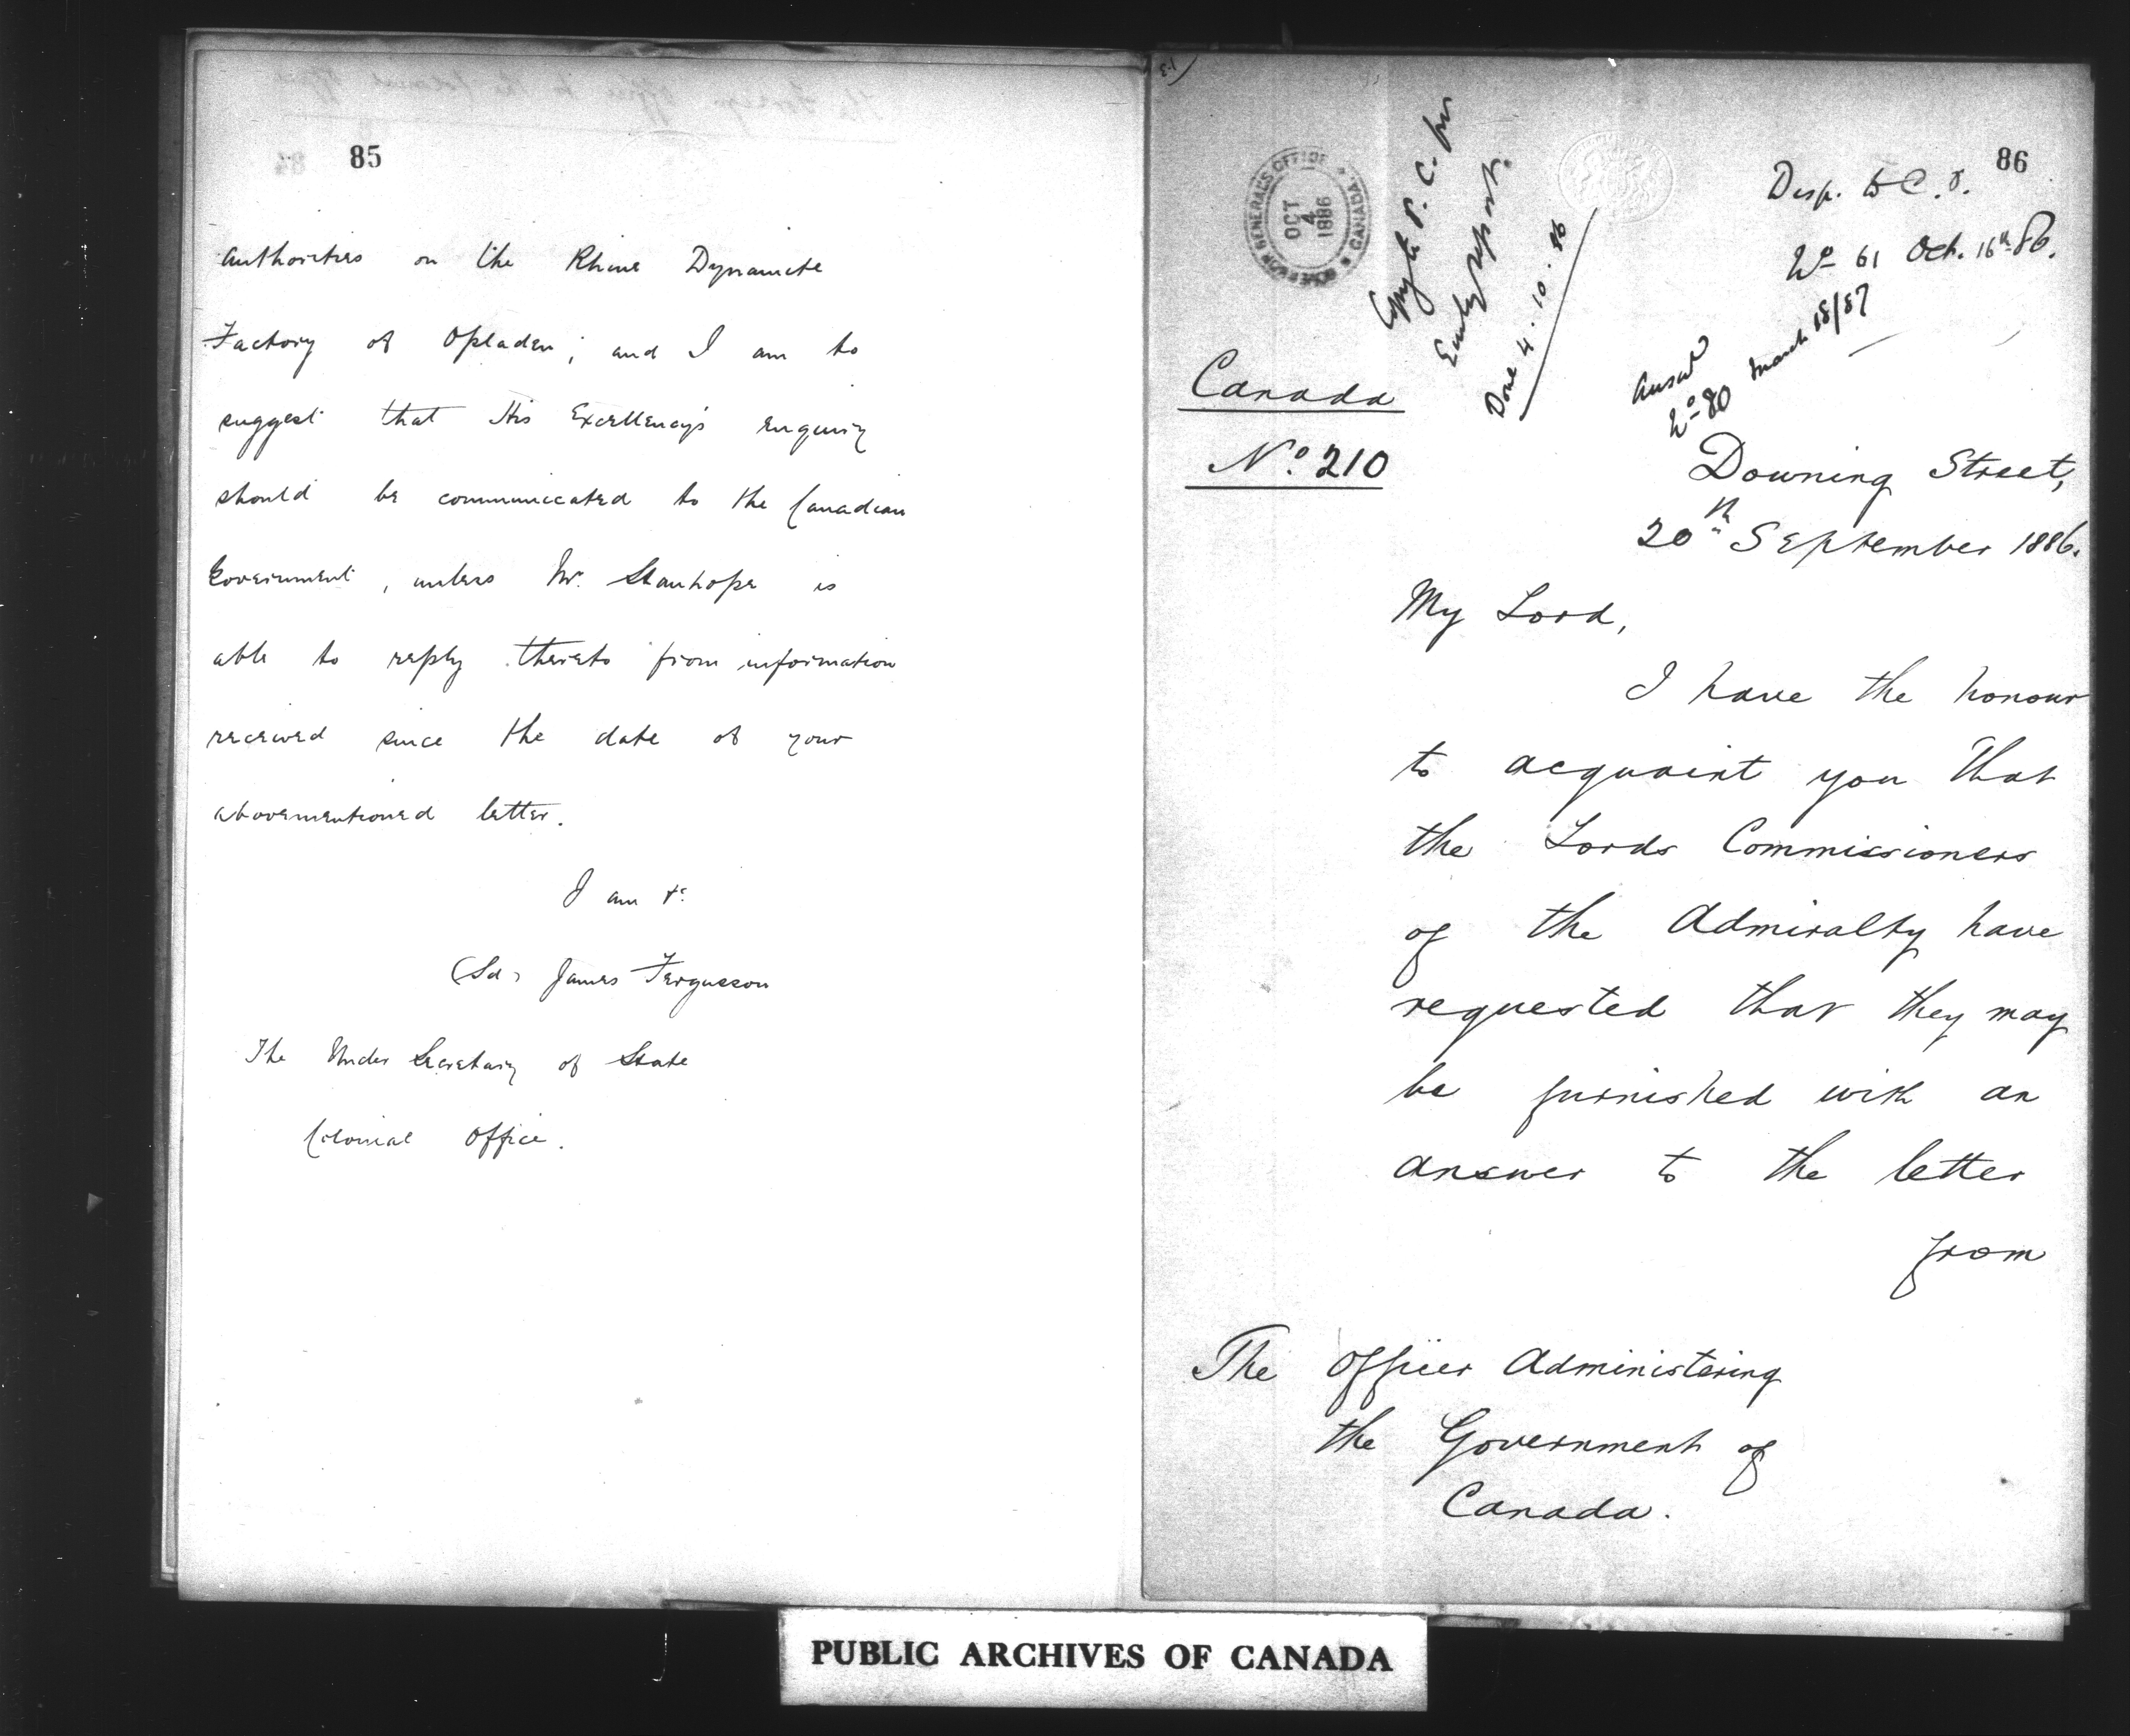 85
authorities on the Rhine Dynamite
Factory of Opladen; and I am to
suggest that His Excellency's enquiry
should be communicated to the Canadian
Government, unless Mr. Stanhope is
able to reply thereto from information
received since the date of your
abovementioned letter.
I am &c
(Sd) James Fergusson
The Under Secretary of State
Colonial Office.
86
GOVERNOR GENERAL'S OFFICE
CANADA
OCT
4
1886
Copy to P. C. for
Early report.
Done 4.10.86
Desp. to C.O.
No 61 Oct. 16th 86.
Answd
No 80 March 18/87
Canada
No. 210
Downing Street,
20th September 1886.
My Lord,
I have the honour
to acquaint you that
the Lords Commissioners
of the Admiralty have
requested that they may
be furnished with an
answer to the letter
from
The Officer Administering
the Government of
Canada.
PUBLIC ARCHIVES OF CANADA